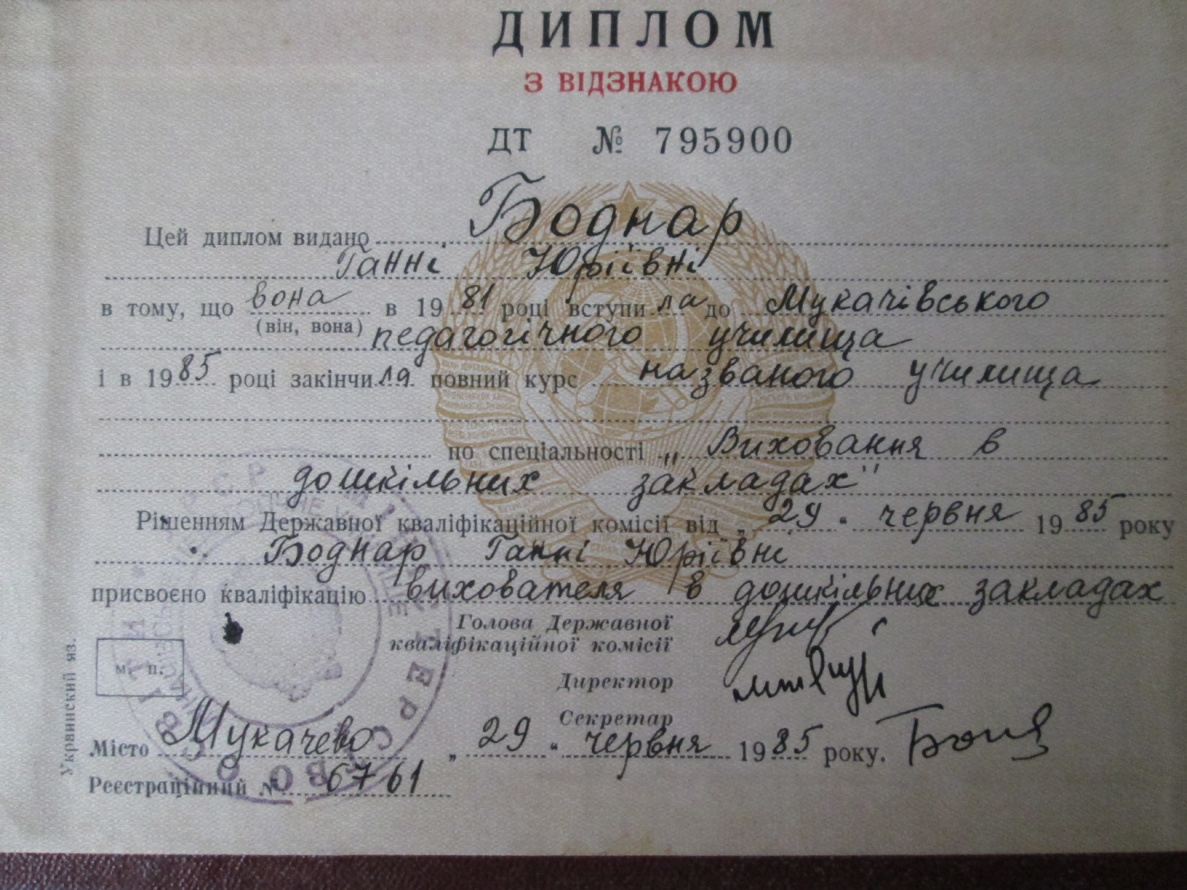 ДИПЛОМ
З ВІДЗНАКОЮ
ДТ № 795900
Цей диплом видано Боднар
Ганні Юріївні
в тому, що вона в 1981 році вступила до Мукачівського
(він, вона) педагогічного училища
і в 1985 році закінчила повний курс названого училища
по спеціальності „Виховання в
дошкільних закладах"
Рішенням Державної кваліфікаційної комісії від „29" червня 1985 року
Боднар Ганні Юріївні
присвоєно кваліфікацію вихователя в дошкільних закладах
Голова Державної
кваліфікаційної комісії
м. п.
Директор
Секретар
Місто Мукачево „29" червня 1985 року.
Реєстраційний № 6761
Украинский яз.